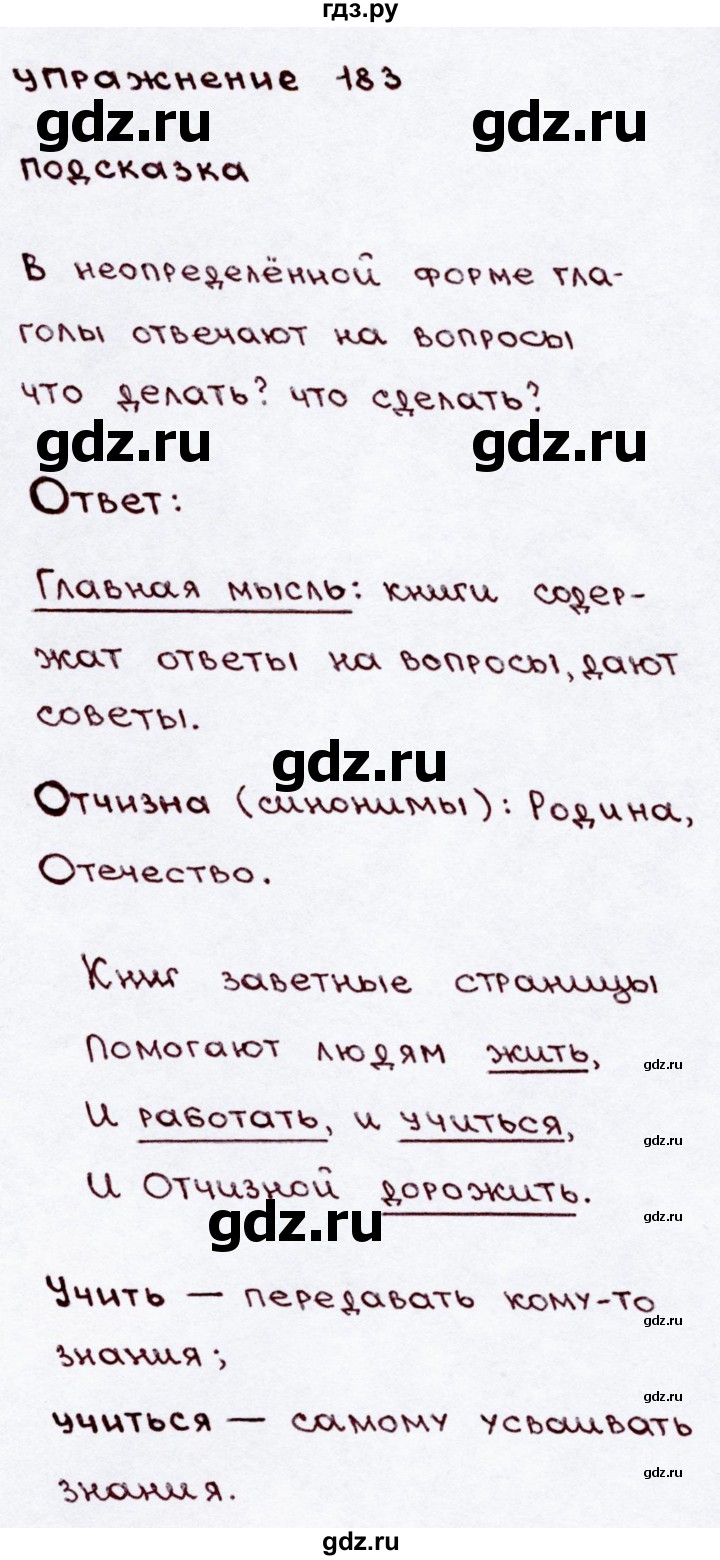 гдз.ру
упражнение 183
gdz.ru gdz.ru
подсказка
В неопределённой форме гла-
голы отвечают на вопросы
что делать? что сделать?
gdz.ru gdz.ru
Ответ:
Главная мысль: книги содер-
жат ответы на вопросы, дают
советы.
gdz.ru
Отчизна (синонимы): Родина,
Отечество.
Книг заветные страницы
Помогают людям жить,
gdz.ru
И работать, и учиться,
gdz.ru
И Отчизной дорожить.
gdz.ru
gdz.ru
Учить — передавать кому-то
gdz.ru
знания;
gdz.ru
учиться — самому усваивать
знания.
gdz.ru
gdz.ru